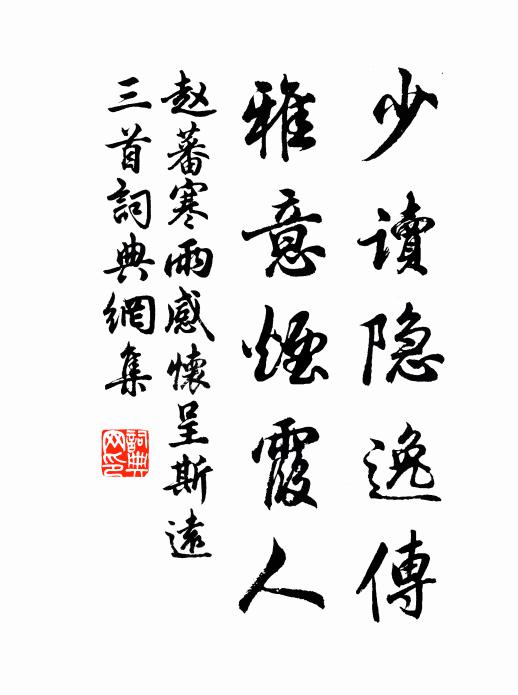 少读隐逸傳
雅意煙霞人
赵蕃寒雨感懷呈斯遠
三首詞典網集
詞典网印